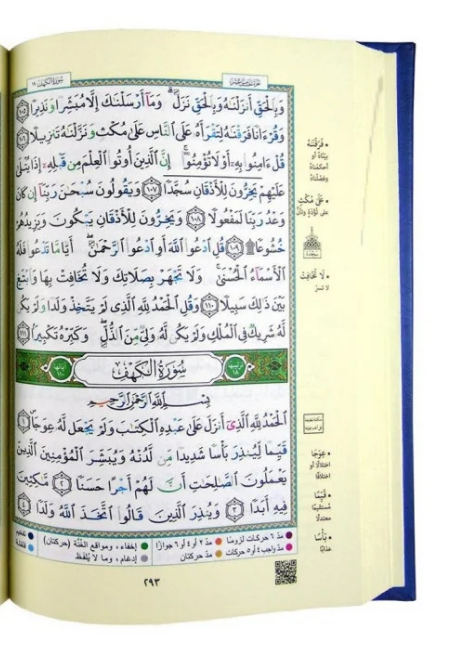 سُورَةُ الكَهْفِ ١٨
وَبِالْحَقِّ أَنزَلْنَٰهُ وَبِالْحَقِّ نَزَلَ ۗ وَمَا أَرْسَلْنَٰكَ إِلَّا مُبَشِّرًا وَنَذِيرًا ١٠٥
وَقُرْءَانًا فَرَقْنَٰهُ لِتَقْرَأَهُۥ عَلَى النَّاسِ عَلَىٰ مُكْثٍ وَنَزَّلْنَٰهُ تَنزِيلًا ١٠٦
قُلْ ءَامِنُوا بِهِۦٓ أَوْ لَا تُؤْمِنُوٓا ۚ إِنَّ الَّذِينَ أُوتُوا الْعِلْمَ مِن قَبْلِهِۦٓ إِذَا يُتْلَىٰ
عَلَيْهِمْ يَخِرُّونَ لِلْأَذْقَانِ سُجَّدًا ١٠٧ وَيَقُولُونَ سُبْحَٰنَ رَبِّنَآ إِن كَانَ
وَعْدُ رَبِّنَا لَمَفْعُولًا ١٠٨ وَيَخِرُّونَ لِلْأَذْقَانِ يَبْكُونَ وَيَزِيدُهُمْ
خُشُوعًا ۩ ١٠٩ قُلِ ادْعُوا اللَّهَ أَوِ ادْعُوا الرَّحْمَٰنَ ۖ أَيًّا مَّا تَدْعُوا فَلَهُ
الْأَسْمَآءُ الْحُسْنَىٰ ۚ وَلَا تَجْهَرْ بِصَلَاتِكَ وَلَا تُخَافِتْ بِهَا وَابْتَغِ
بَيْنَ ذَٰلِكَ سَبِيلًا ١١٠ وَقُلِ الْحَمْدُ لِلَّهِ الَّذِى لَمْ يَتَّخِذْ وَلَدًا وَلَمْ يَكُن
لَّهُۥ شَرِيكٌ فِى الْمُلْكِ وَلَمْ يَكُن لَّهُۥ وَلِىٌّ مِّنَ الذُّلِّ ۖ وَكَبِّرْهُ تَكْبِيرًا ١١١
سُورَةُ الكَهْفِ
بِسْمِ اللَّهِ الرَّحْمَٰنِ الرَّحِيمِ
الْحَمْدُ لِلَّهِ الَّذِىٓ أَنزَلَ عَلَىٰ عَبْدِهِ الْكِتَٰبَ وَلَمْ يَجْعَل لَّهُۥ عِوَجَا ١
قَيِّمًا لِّيُنذِرَ بَأْسًا شَدِيدًا مِّن لَّدُنْهُ وَيُبَشِّرَ الْمُؤْمِنِينَ الَّذِينَ
يَعْمَلُونَ الصَّٰلِحَٰتِ أَنَّ لَهُمْ أَجْرًا حَسَنًا ٢ مَّٰكِثِينَ
فِيهِ أَبَدًا ٣ وَيُنذِرَ الَّذِينَ قَالُوا اتَّخَذَ اللَّهُ وَلَدًا ٤
• فَرَقْنَٰهُ
بيّنّاه أو
أحكمناه
وفصّلناه
• عَلَىٰ مُكْثٍ
على تؤدة وتأنّ
• لَا تُخَافِتْ
لا تسرّ
• عِوَجًا
اختلالًا أو
اختلافًا
• قَيِّمًا
مستقيمًا
معتدلًا
• بَأْسًا
عذابًا
مدّ ٦ حركات لزومًا مدّ ٢ أو ٤ أو ٦ جوازًا إخفاء، ومواقع الغُنَّة (حركتان) تفخيم
مدّ واجب ٤ أو ٥ حركات مدّ حركتان إدغام، وما لا يُلفَظ قلقلة
٢٩٣